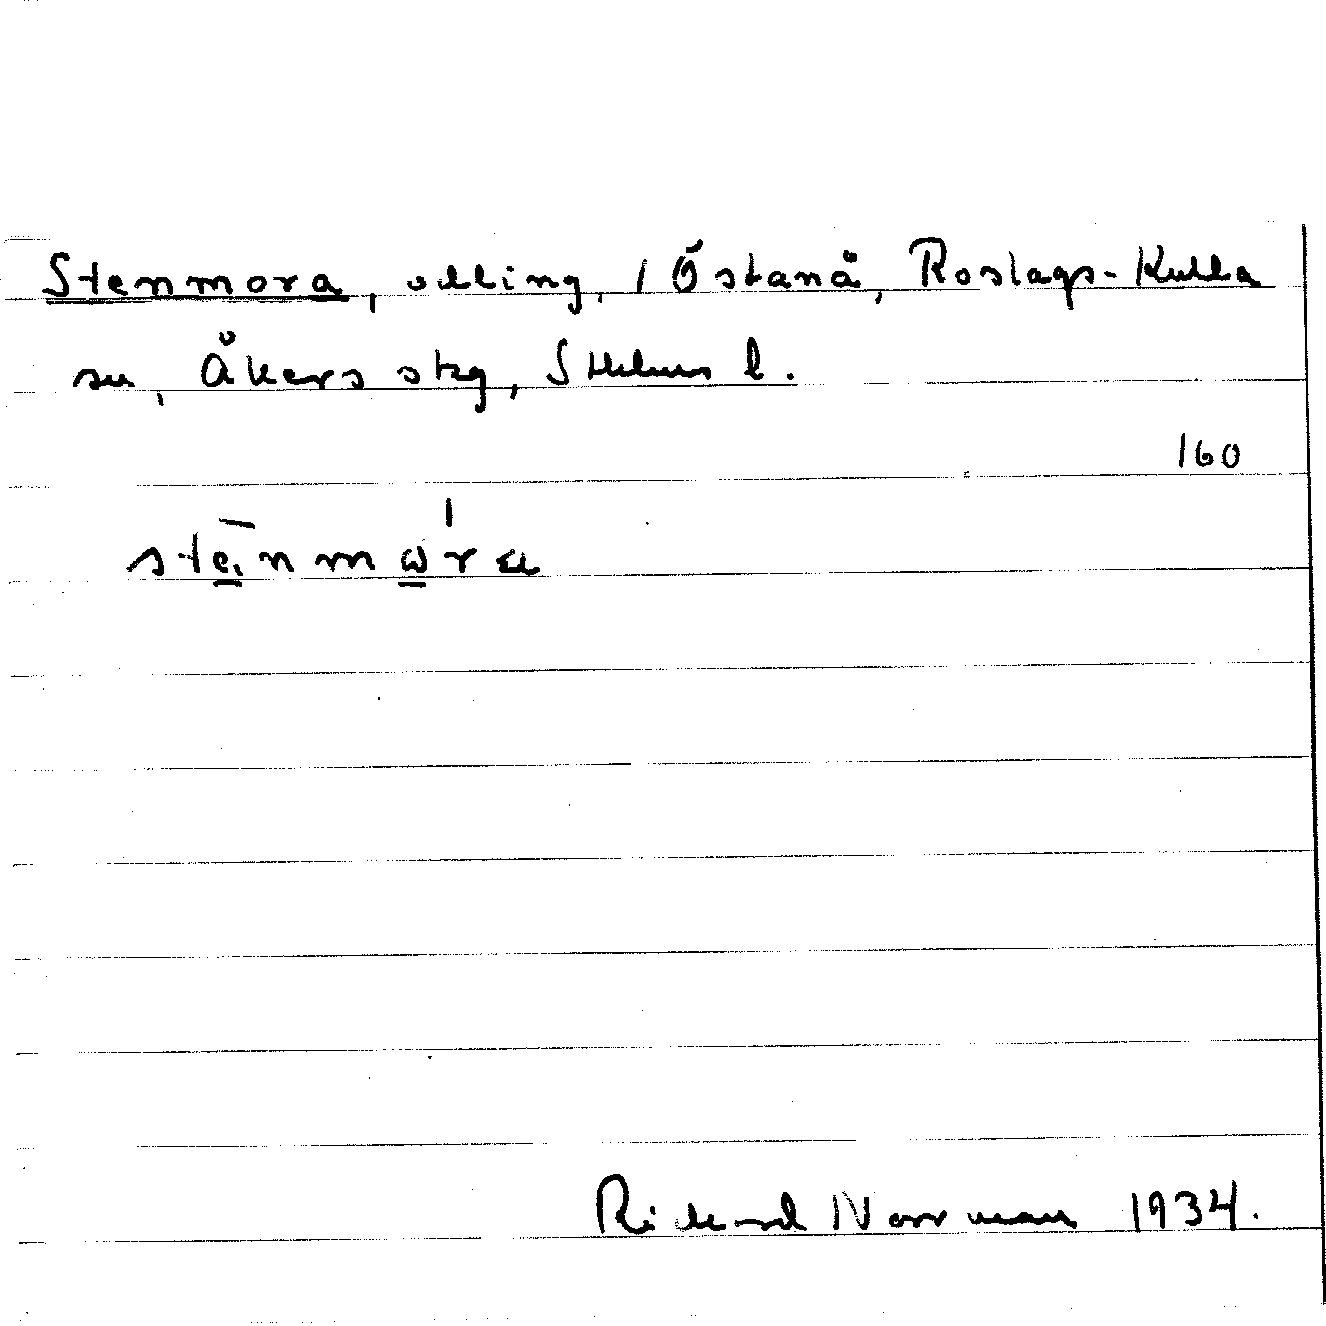 Stenmora, odling, / Östanå, Roslags-Kulla
sn, Åkers skg, Sthlms l.
160
Rickard Norrman 1934.